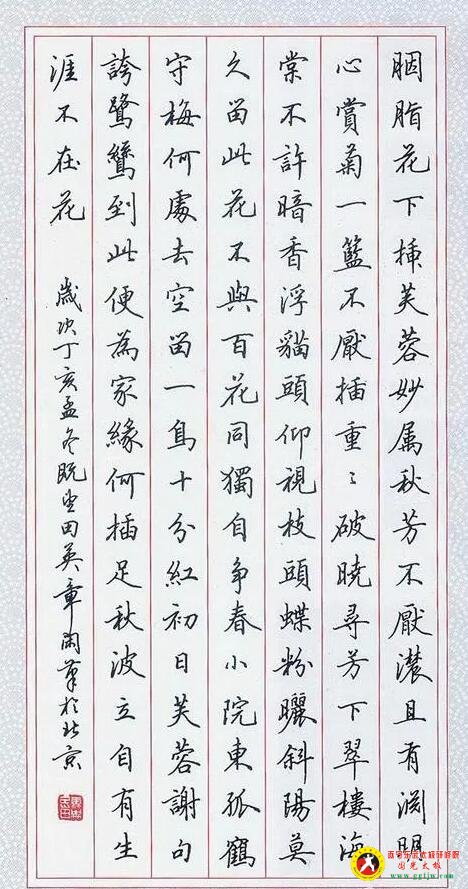 胭脂花下插芙蓉妙属秋芳不厭濃且有渊明
心賞菊一籃不厭插重〻破曉尋芳下翠樓海
棠不許暗香浮貓頭仰視枝頭蝶粉曬斜陽莫
久留此花不與百花同獨自争春小院東孤鶴
守梅何處去空留一鳥十分紅初日芙蓉謝句
誇鷺鷥到此便為家緣何插足秋波立自有生
涯不在花
歲次丁亥孟冬既望田英章閑筆於北京
國光太極
www.ggtjw.com